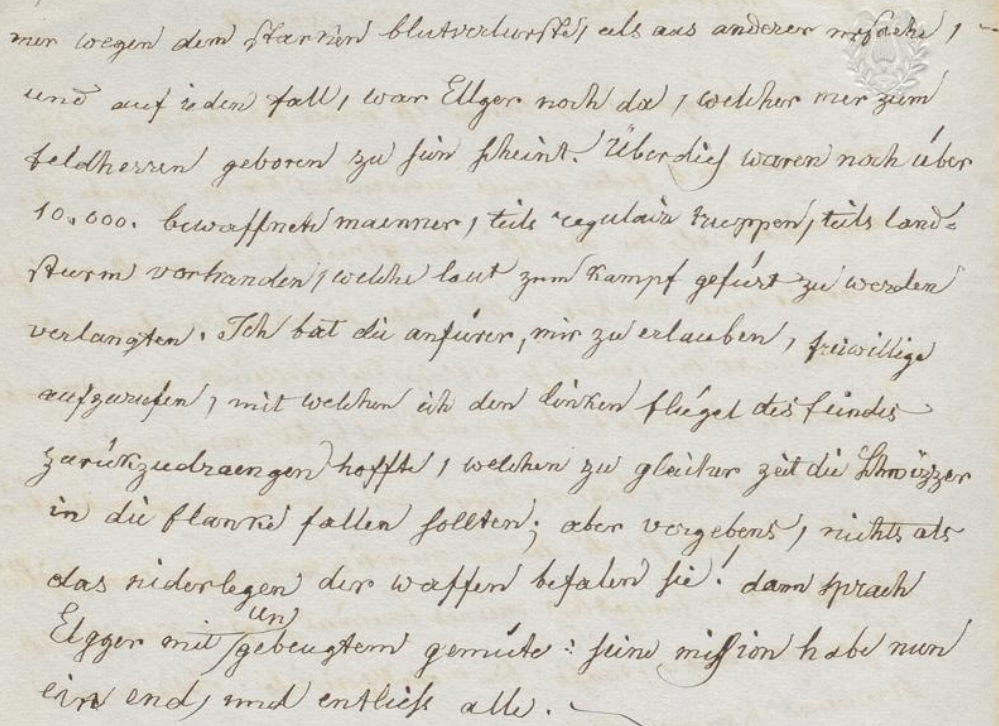 mer wegen dem starken blutverlurste, als aus anderer ursache, –
und auf ieden fall, war Ellger noch da, welcher mer zum
feldherren geboren zu sein scheint. Überdies waren noch über
10.000. bewaffnete maenner, teils regulaire truppen, teils land=
sturm vorhanden, welche laut zum kampf gefürt zu werden
verlangten. Ich bat die anfürer, mir zu erlauben, freiwillige
aufzurufen, mit welchen ich den linken flügel des feindes
zurükzudraengen hoffte, welchen zu gleicher zeit die Schwizzer
in die flanke fallen sollten; aber vergebens, nichts als
das niderlegen der waffen befalen sie! dann sprach
Elgger mit ungebeugtem gemüte: seine mission habe nun
ein end, und entließ alle. –